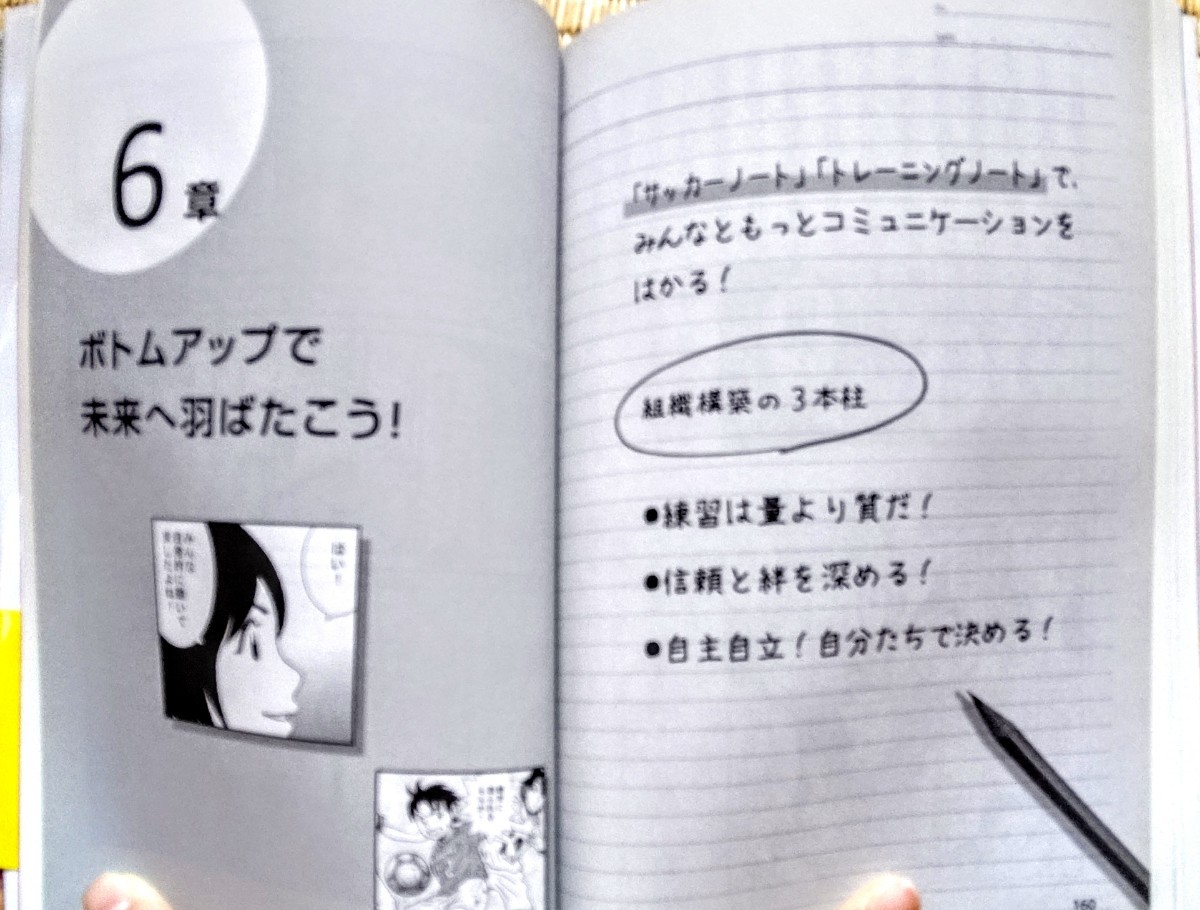 6章
ボトムアップで
未来へ羽ばたこう!
はい!!
みんな
「サッカーノート」「トレーニングノート」で、
みんなともっとコミュニケーションを
はかる!
組織構築の3本柱
●練習は量より質だ!
●信頼と絆を深める!
●自主自立!自分たちで決める!
160